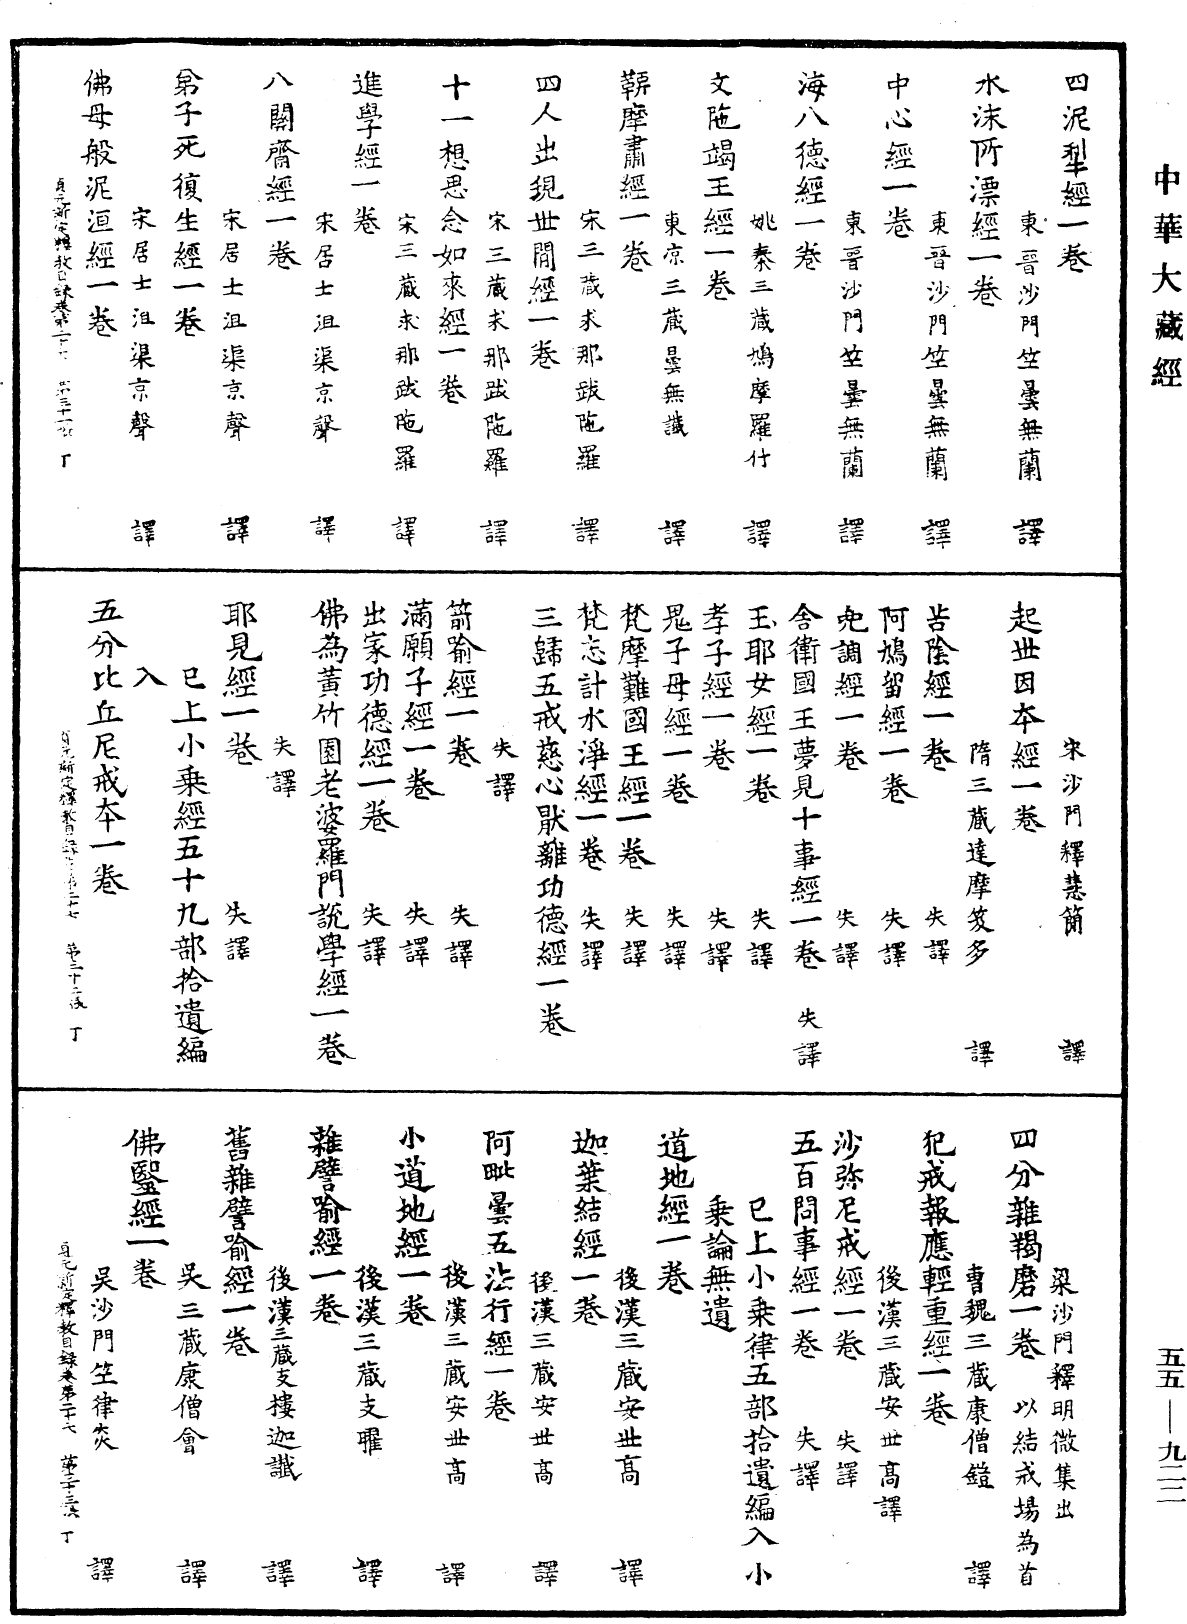 中華大藏經
四泥犁經一卷
東晉沙門竺曇無蘭 譯
水沫所漂經一卷
東晉沙門竺曇無蘭 譯
中心經一卷
東晉沙門竺曇無蘭 譯
海八德經一卷
姚秦三藏鳩摩羅什 譯
文陁竭王經一卷
東京三藏曇無讖 譯
鞞摩肅經一卷
宋三藏求那跋陁羅 譯
四人出現世間經一卷
宋三藏求那跋陁羅 譯
十一想思念如來經一卷
宋三藏求那跋陁羅 譯
進學經一卷
宋居士沮渠京聲 譯
八關齋經一卷
宋居士沮渠京聲 譯
弟子死復生經一卷
宋居士沮渠京聲 譯
佛母般泥洹經一卷
貞元新定釋教目錄卷第二十七 第三十一张 丁
宋沙門釋慧簡 譯
起世因本經一卷
隋三藏達摩笈多 譯
苦陰經一卷 失譯
阿鳩留經一卷 失譯
兜調經一卷 失譯
舍衛國王夢見十事經一卷 失譯
玉耶女經一卷 失譯
孝子經一卷 失譯
鬼子母經一卷 失譯
梵摩難國王經一卷 失譯
梵志計水淨經一卷 失譯
三歸五戒慈心厭離功德經一卷
失譯
箭喻經一卷 失譯
滿願子經一卷 失譯
出家功德經一卷 失譯
佛為黃竹園老婆羅門說學經一卷
失譯
耶見經一卷 失譯
已上小乘經五十九部拾遺編
入
五分比丘尼戒本一卷
貞元新定釋教目錄卷第二十七 第三十二张 丁
梁沙門釋明徽集出
四分雜羯磨一卷 以結戒場為首
曹魏三藏康僧鎧 譯
犯戒報應輕重經一卷
後漢三藏安世高譯
沙弥尼戒經一卷 失譯
五百問事經一卷 失譯
已上小乘律五部拾遺編入小
乘論無遺
道地經一卷
後漢三藏安世高 譯
迦葉結經一卷
後漢三藏安世高 譯
阿毗曇五法行經一卷
後漢三藏安世高 譯
小道地經一卷
後漢三藏支曜 譯
雜譬喻經一卷
後漢三藏支樓迦讖 譯
舊雜譬喻經一卷
吳三藏康僧會 譯
佛毉經一卷
吳沙門竺律炎 譯
貞元新定釋教目錄卷第二十七 第三十三张 丁
五五—九二二